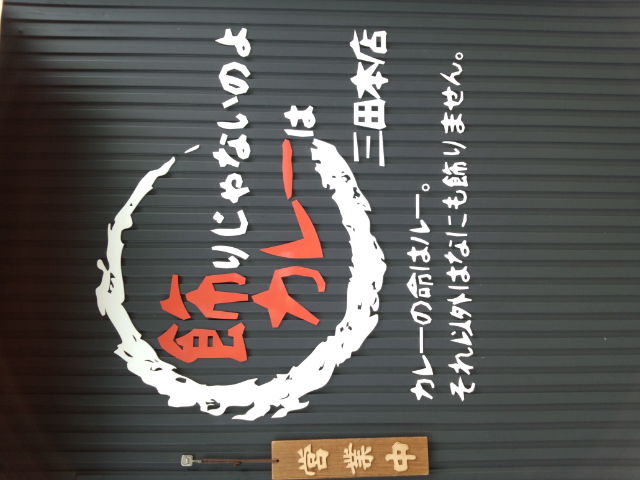 飾りじゃないのよ
カレーは
三田本店
カレーの命はルー。
それ以外はなにも飾りません。
営業中